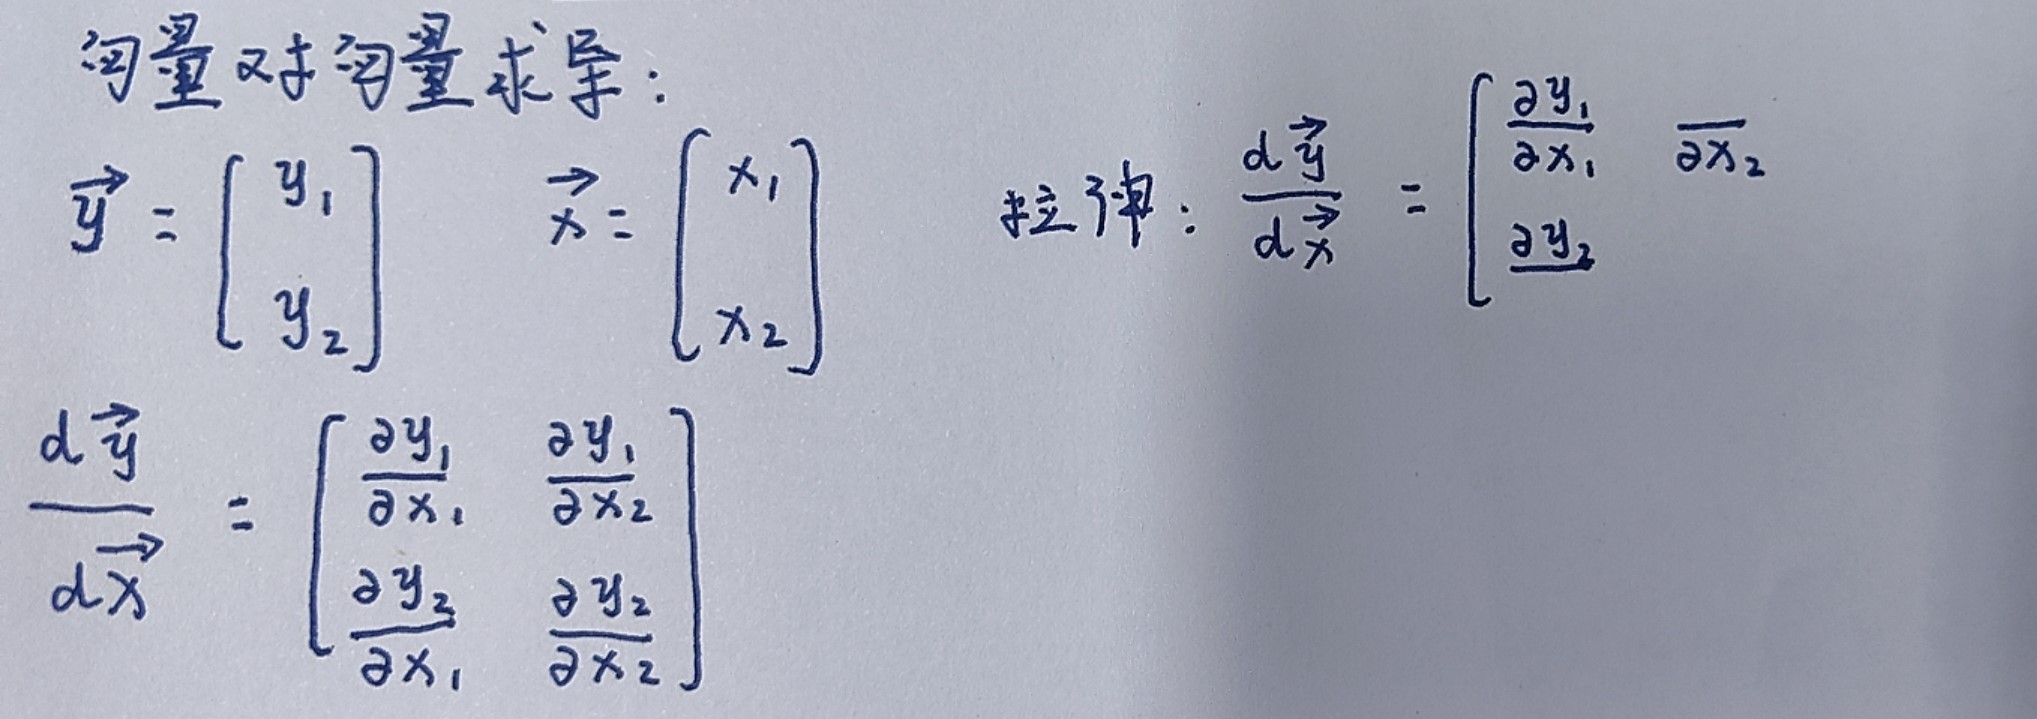 向量对向量求导:
$\vec{y} = \begin{bmatrix} y_1 \\ y_2 \end{bmatrix}$ $\vec{x} = \begin{bmatrix} x_1 \\ x_2 \end{bmatrix}$
$\frac{d\vec{y}}{d\vec{x}} = \begin{bmatrix} \frac{\partial y_1}{\partial x_1} & \frac{\partial y_1}{\partial x_2} \\ \frac{\partial y_2}{\partial x_1} & \frac{\partial y_2}{\partial x_2} \end{bmatrix}$
拉弹: $\frac{d\vec{y}}{d\vec{x}} = \left[ \begin{matrix} \frac{\partial y_1}{\partial x_1} & \frac{}{\partial x_2} \\ \frac{\partial y_2}{} & \end{matrix} \right.$